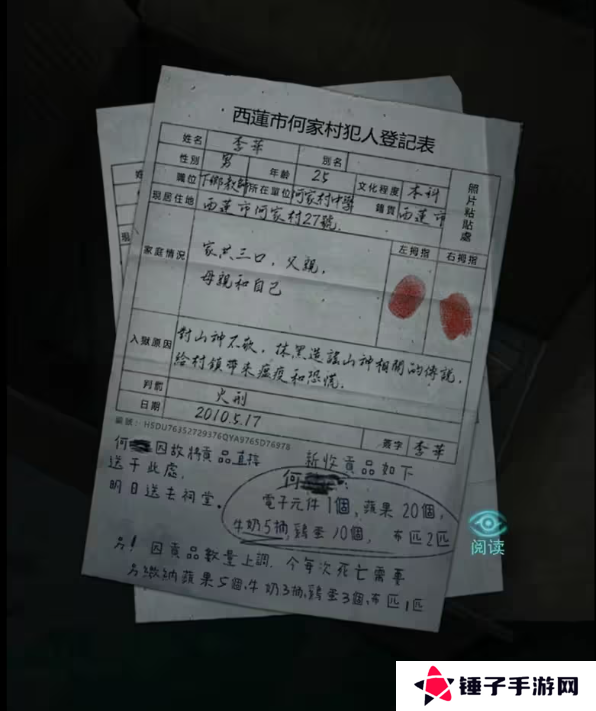 西蓮市何家村犯人登記表
姓名 李華 別名
性別 男 年齡 25 文化程度 本科
職位 下鄉教師 所在單位 何家村中學 籍貫 西蓮市
現居住地 西蓮市何家村27號
照片粘貼處
家庭情況 家共三口，父親，
母親和自己
左拇指 右拇指
入獄原因 對山神不敬，抹黑造謠山神相關的傳說，
給村鎮帶來瘟疫和恐慌。
判罰 火刑
日期 2010.5.17
簽字 李華
編號：HSDU76352729376QYA9765D76978
何 因故將貢品直接
送于此處，
明日送去祠堂。
新收貢品如下
何
電子元件1個，蘋果20個，
牛奶5抽，鷄蛋10個，布匹2匹
另！因貢品數量上調，今每次死亡需要
另繳納蘋果5個，牛奶3抽，鷄蛋3個，布匹1匹
阅读
锤子手游网